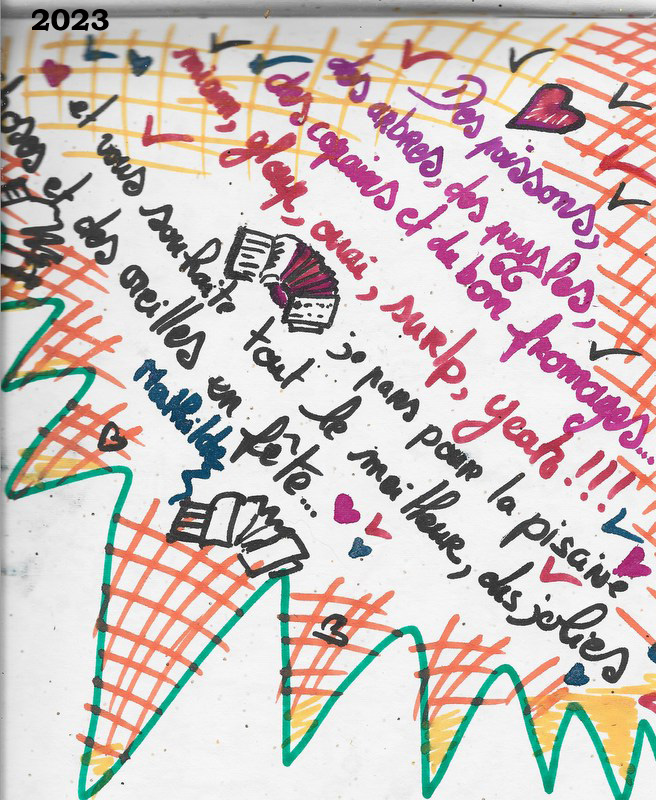 2023
Des poissons,
des arbres, des puzzles,
des copains et du bon fromages...
miam, gloup, ouai, suRlp, yeah!!!
je pars pour la piscine
et vous souhaite tout le meilleur, des jolies
choses et des oreilles en fête...
Mathilde